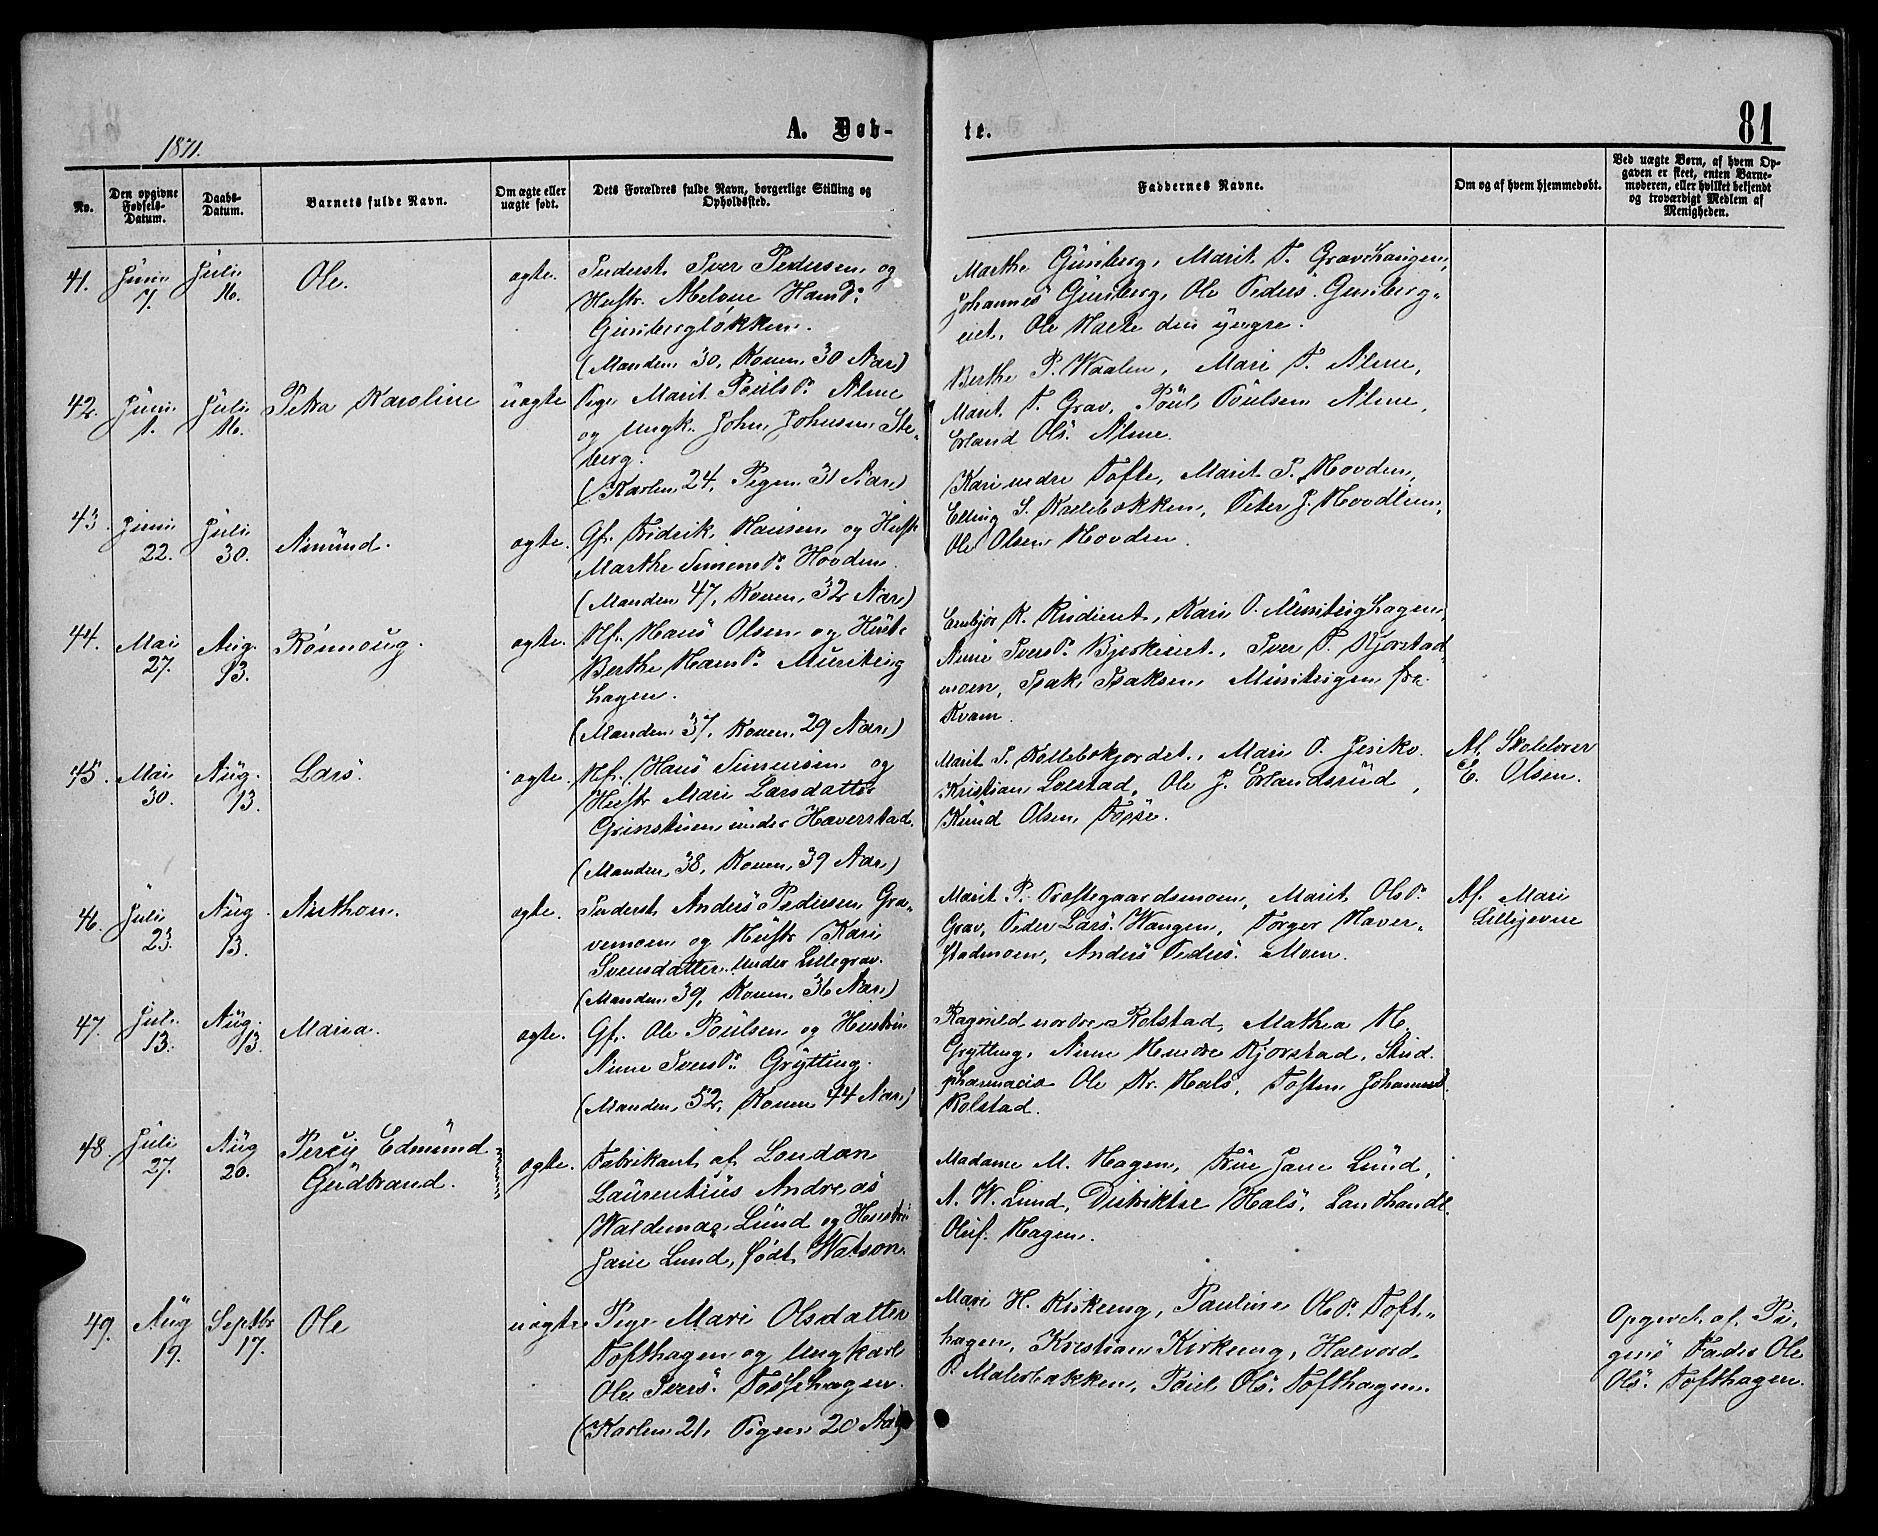 1871.
A. Døb-
te.
81
No.
Den opgivne Fødsels-Datum.
Daabs-Datum.
Barnets fulde Navn.
Om ægte eller uægte født.
Dets Forældres fulde Navn, borgerlige Stilling og Opholdssted.
Faddernes Navne.
Om og af hvem hjemmedøbt.
Ved uægte Børn, af hvem Op-
gaven er skeet, enten Barne-
moderen, eller hvilket bekjendt
og troværdigt Medlem af
Menigheden.
41. Juni 7. Juli 16. Ole. ægte.
Inderst Iver Pedersen og
Hustr. Hansd.
(Manden 30, Konen 30 Aar)
Marthe Gunberg, Marit T. Gravehaugen,
Johannes Gunberg, Ole Peders. Gunberg-
eiet, Ole den yngre.
42. Juni 1. Juli 16. Petra Karoline uægte
Pige Marit Pouls D. Alme
og Ungk. John Johnsen Ste-
berg.
(Karlen 24, Pigen 31 Aar)
Berthe P. Waalen, Mari T. Alme,
Marit T. Grav, Poul Poulsen Alme,
Erland Ols. Alme.
43. Juni 22. Juli 30. Amund. ægte.
Gf. Fredrik Hansen og Hustr.
Marthe Simens D. Hovden.
(Manden 47, Konen 32 Aar)
Kari nedre Tofte, Marit P. Hovden,
Elling S. Peter J. Hovdlien,
Ole Olsen Hovden.
44. Mai 27. Aug. 13. Rønnoug. ægte.
Hf. Hans Olsen og Hust.
Berthe Hans D.
hagen.
(Manden 37, Konen 29 Aar)
Embjør K. Kari O.
Anne Ivers D. Bjerkeiet, Iver P. Kjørstad-
moen, Isak Isaksen fra
Kvam.
45. Mai 30. Aug. 13. Lars. ægte.
Hf. Hans Simensen og
Hustr. Mari Larsdatter
Grinstuen under Haverstad.
(Manden 38, Konen 39 Aar)
Marit S. Mari O.
Kristian Lolstad, Ole J. Erlandsrud,
Knud Olsen Fosse.
Af Skolelærer
E. Olsen.
46. Juli 23. Aug. 13. Anthon. ægte.
Inderst Anders Pedersen Gra-
vemoen og Hustr. Kari
Svensdatter under Lillegrav.
(Manden 39, Konen 36 Aar)
Marit P. Præstegaardsmoen, Marit Ols D.
Grav, Peder Lars. Wangen, Torger Haver-
stadmoen, Anders Peders. Moen.
Af Mari
Lillejevne
47. Juli 13. Aug. 13. Maria. ægte.
Gf. Ole Poulsen og Hustru
Anne Ivers D. Grytting.
(Manden 52, Konen 44 Aar)
Ragnild nordre Rolstad, Mathea H.
Grytting, Anne Kjørstad, Stud.
pharmacia Ole Kr. Hals, Tosten Johannes.
Rolstad.
48. Juli 27. Aug 20. Percy Edmund
Gudbrand. ægte.
Fabrikant af London
Laurentius Andreas
Waldemar Lund og Hustru
Jane Lund, født Watson.
Madame M. Hagen, Frue Jane Lund,
A. W. Lund, Distriktsl. Hals, Landhandl.
Oluf Hagen.
49. Aug 19. Septbr 17. Ole uægte
Pige Mari Olsdatter
Tofthagen og Ungkarl
Ole Ivers. Fossehagen.
(Karlen 21, Pigen 20 Aar)
Mari H. Kirkeng, Pauline Ols D. Toft-
hagen, Kristian Kirkeng, Halvord
P. Malerbakken, Poul Ols. Tofthagen.
Opgivet af Pi-
gens Fader Ole
Ols. Tofthagen.